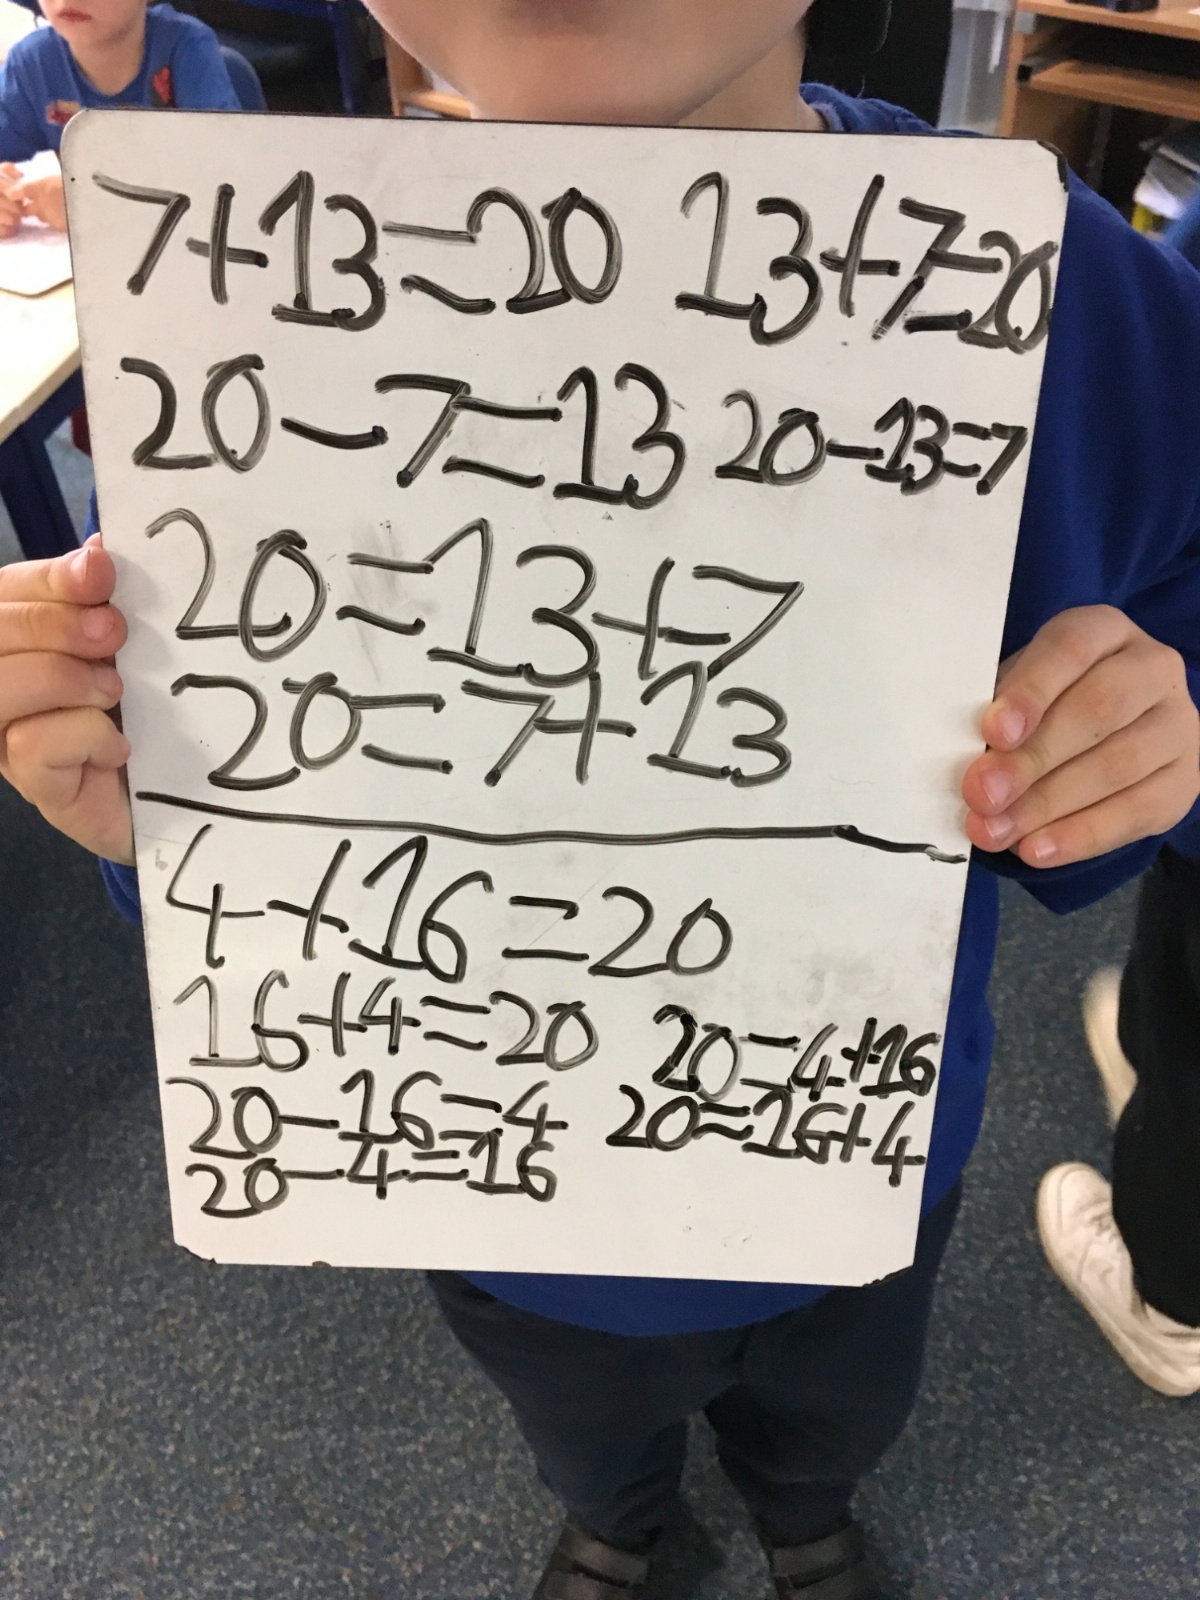 7+13=20 13+7=20
20-7=13 20-13=7
20=13+7
20=7+13
4+16=20
16+4=20
20-16=4
20-4=16
20=4+16
20=16+4